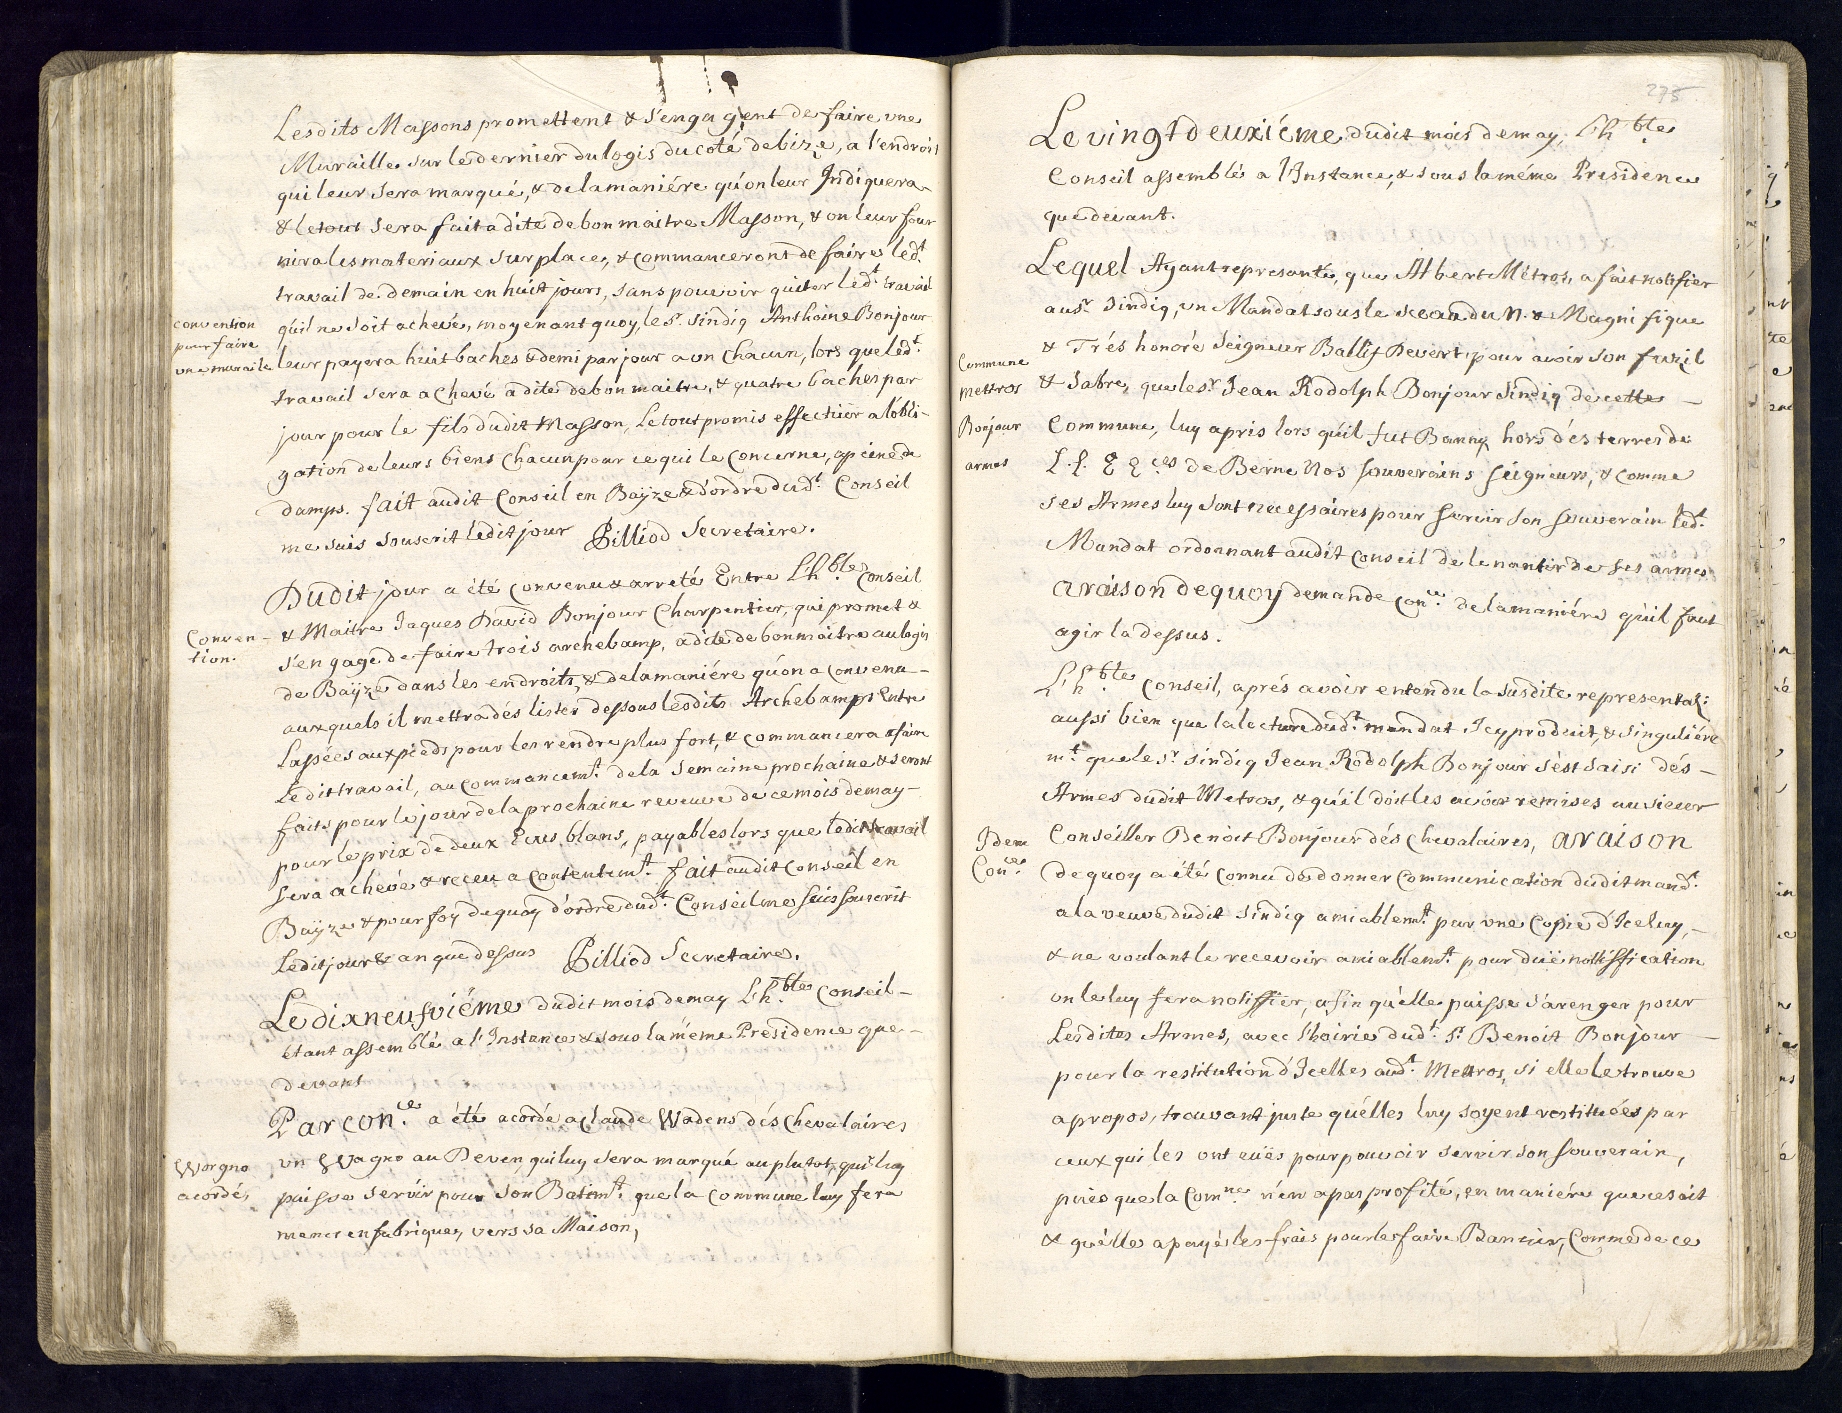 Lesdits Massons promettent & s'engagent de faire une
Muraille sur le dernier du logis du coté de bize, a l'endroit
qui leur sera marqué, & de la maniére qu'on leur Indiquera
& le tout sera fait a dite de bon maitre Masson, & on leur four
nira les materiaux sur place, & commanceront de faire led.t
travail de demain en huit jours, sans pouvoir quiter led.t travail
qu'il ne soit achevé, moyenant quoy, le s.r sindiq Anthoine Bonjour
convention
pour faire
une muraile
leur payera huit baches & demi par jour a un chacun, lors que led.t
travail sera achevé a dite de bon maitre, & quatre baches par
jour pour le fils dudit Masson, Le tout promis effectüer a l'obli-
gation de leurs biens chacun pour ce qui le concerne, a peine de
damps. fait audit Conseil en Baÿze & d'ordre dud.t Conseil
me suis souscrit ledit jour Pilliod Secretaire.
Dudit jour a été convenu & arreté Entre L'h.ble Conseil
Conven-
tion.
& Maitre Jaques David Bonjour Charpentier, qui promet &
s'engage de faire trois archebamp, a dite de bon maitre au logis
de Baÿze dans les endroits, & de la maniére qu'on a convenu
auxquels il mettra dés listes dessous lesdits Archebamps Entre
Lassées aux pieds pour les rendre plus fort, & commancera a faire
Ledit travail, au commancem.t de la semaine prochaine & seront
faits pour le jour de la prochaine reveuve de ce mois de may
pour le prix de deux Ecus blans, payables lors que ledit travail
sera achevé & receu a contentem.t fait audit Conseil en
Baÿze & pour foy de quoy d'ordre dud.t Conseil me suis souscrit
Ledit jour & an que dessus Pilliod Secretaire.
Le dixneufviéme dudit mois de may L'h.ble Conseil
étant assemblé a l'Instance & sous la méme Presidence que
devant
Par con.ce a été acordé a Claude Wadens dés Chevalaires
Worgno
acordé,
un Wagno au Deven qui luy sera marqué au plutot, qui luy
puisse servir pour son Batim.t que la commune luy fera
mener en fabrique, vers sa Maison,
275
Le vingt deuxiéme dudit mois de may, L'h.ble
Conseil assemblé a l'Instance, & sous la méme Presidence
que devant.
Lequel Ayant representé, que Albert Métros, a fait notifier
au s.r sindiq, un Mandat sous le sceau du N. & Magnifique
& Trés honoré Seigneur Ballif Devert, pour avoir son fuzil
Commune
Mettros
Bonjour
armes
& sabre, que le s.r Jean Rodolph Bonjour sindiq de cette
Commune, luy a pris lors qu'il fut Banny hors dés terres de
L.L. E E.ces de Berne Nos souverains seigneurs, & comme
ses Armes luy sont necessaires pour servir son souverain led.t
Mandat ordonnant audit Conseil de le nantir de ses armes
a raison de quoy demande con.ce de la maniére qu'il faut
agir la dessus.
L'h.ble Conseil, aprés avoir entendu la susdite representat:
aussi bien que la lecture dud.t mandat Icy produit, & singuliére
m.t que le s.r sindiq Jean Rodolph Bonjour s'est saisi dés
Armes dudit Metros, & qu'il doit les avoir remises au sieur
Idem
Con.ce
Conseiller Benoit Bonjour dés Chevalaires, a raison
de quoy a été connu de donner communication dudit mand.t
a la veuve dudit sindiq amiablem.t par une Copie d'Iceluy,
& ne voulant le recevoir amiablem.t pour duë nottiffication
on le luy fera notiffier, afin qu'elle puisse s'arenger pour
Lesdites Armes, avec l'hoirie dud.t S.r Benoit Bonjour
pour la restitution d'Icelles aud.t Mettros, si elle le trouve
a propos, trouvant juste qu'elles luy soyent restituées par
ceux qui les ont eües pour pouvoir servir son souverain,
puis que la com.ne n'en a pas profité, en maniére que ce soit
& qu'elle a payé les frais pour les faire Bannir, Comme de ce